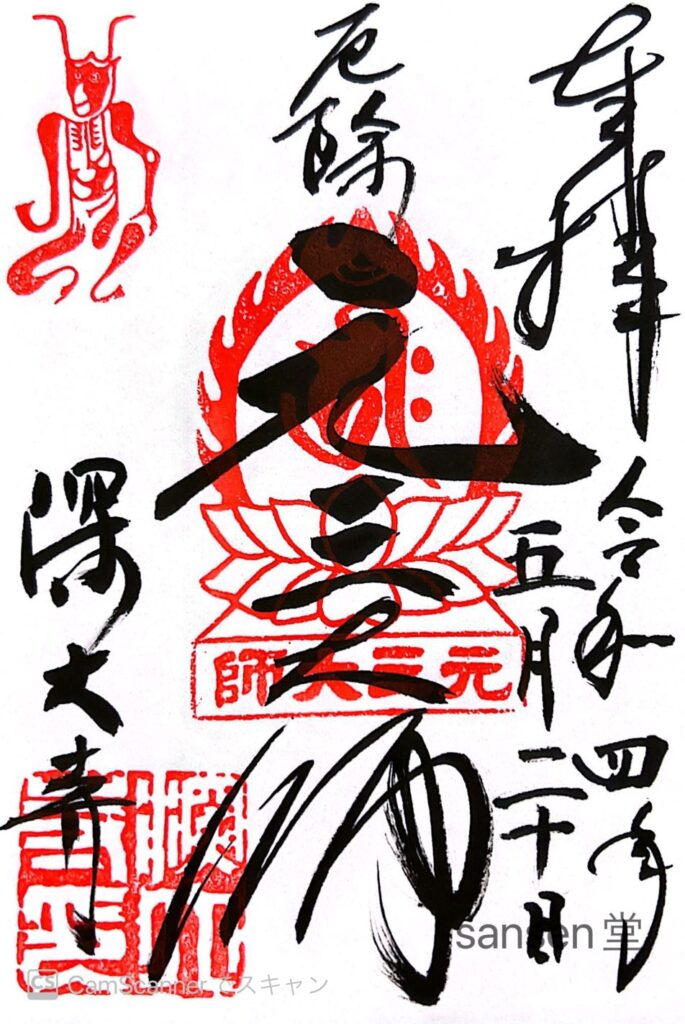 奉拝
令和四年
五月二十日
厄除
元三大師
師大三元
深大寺
sansen 堂
CS CamScanner でスキャン